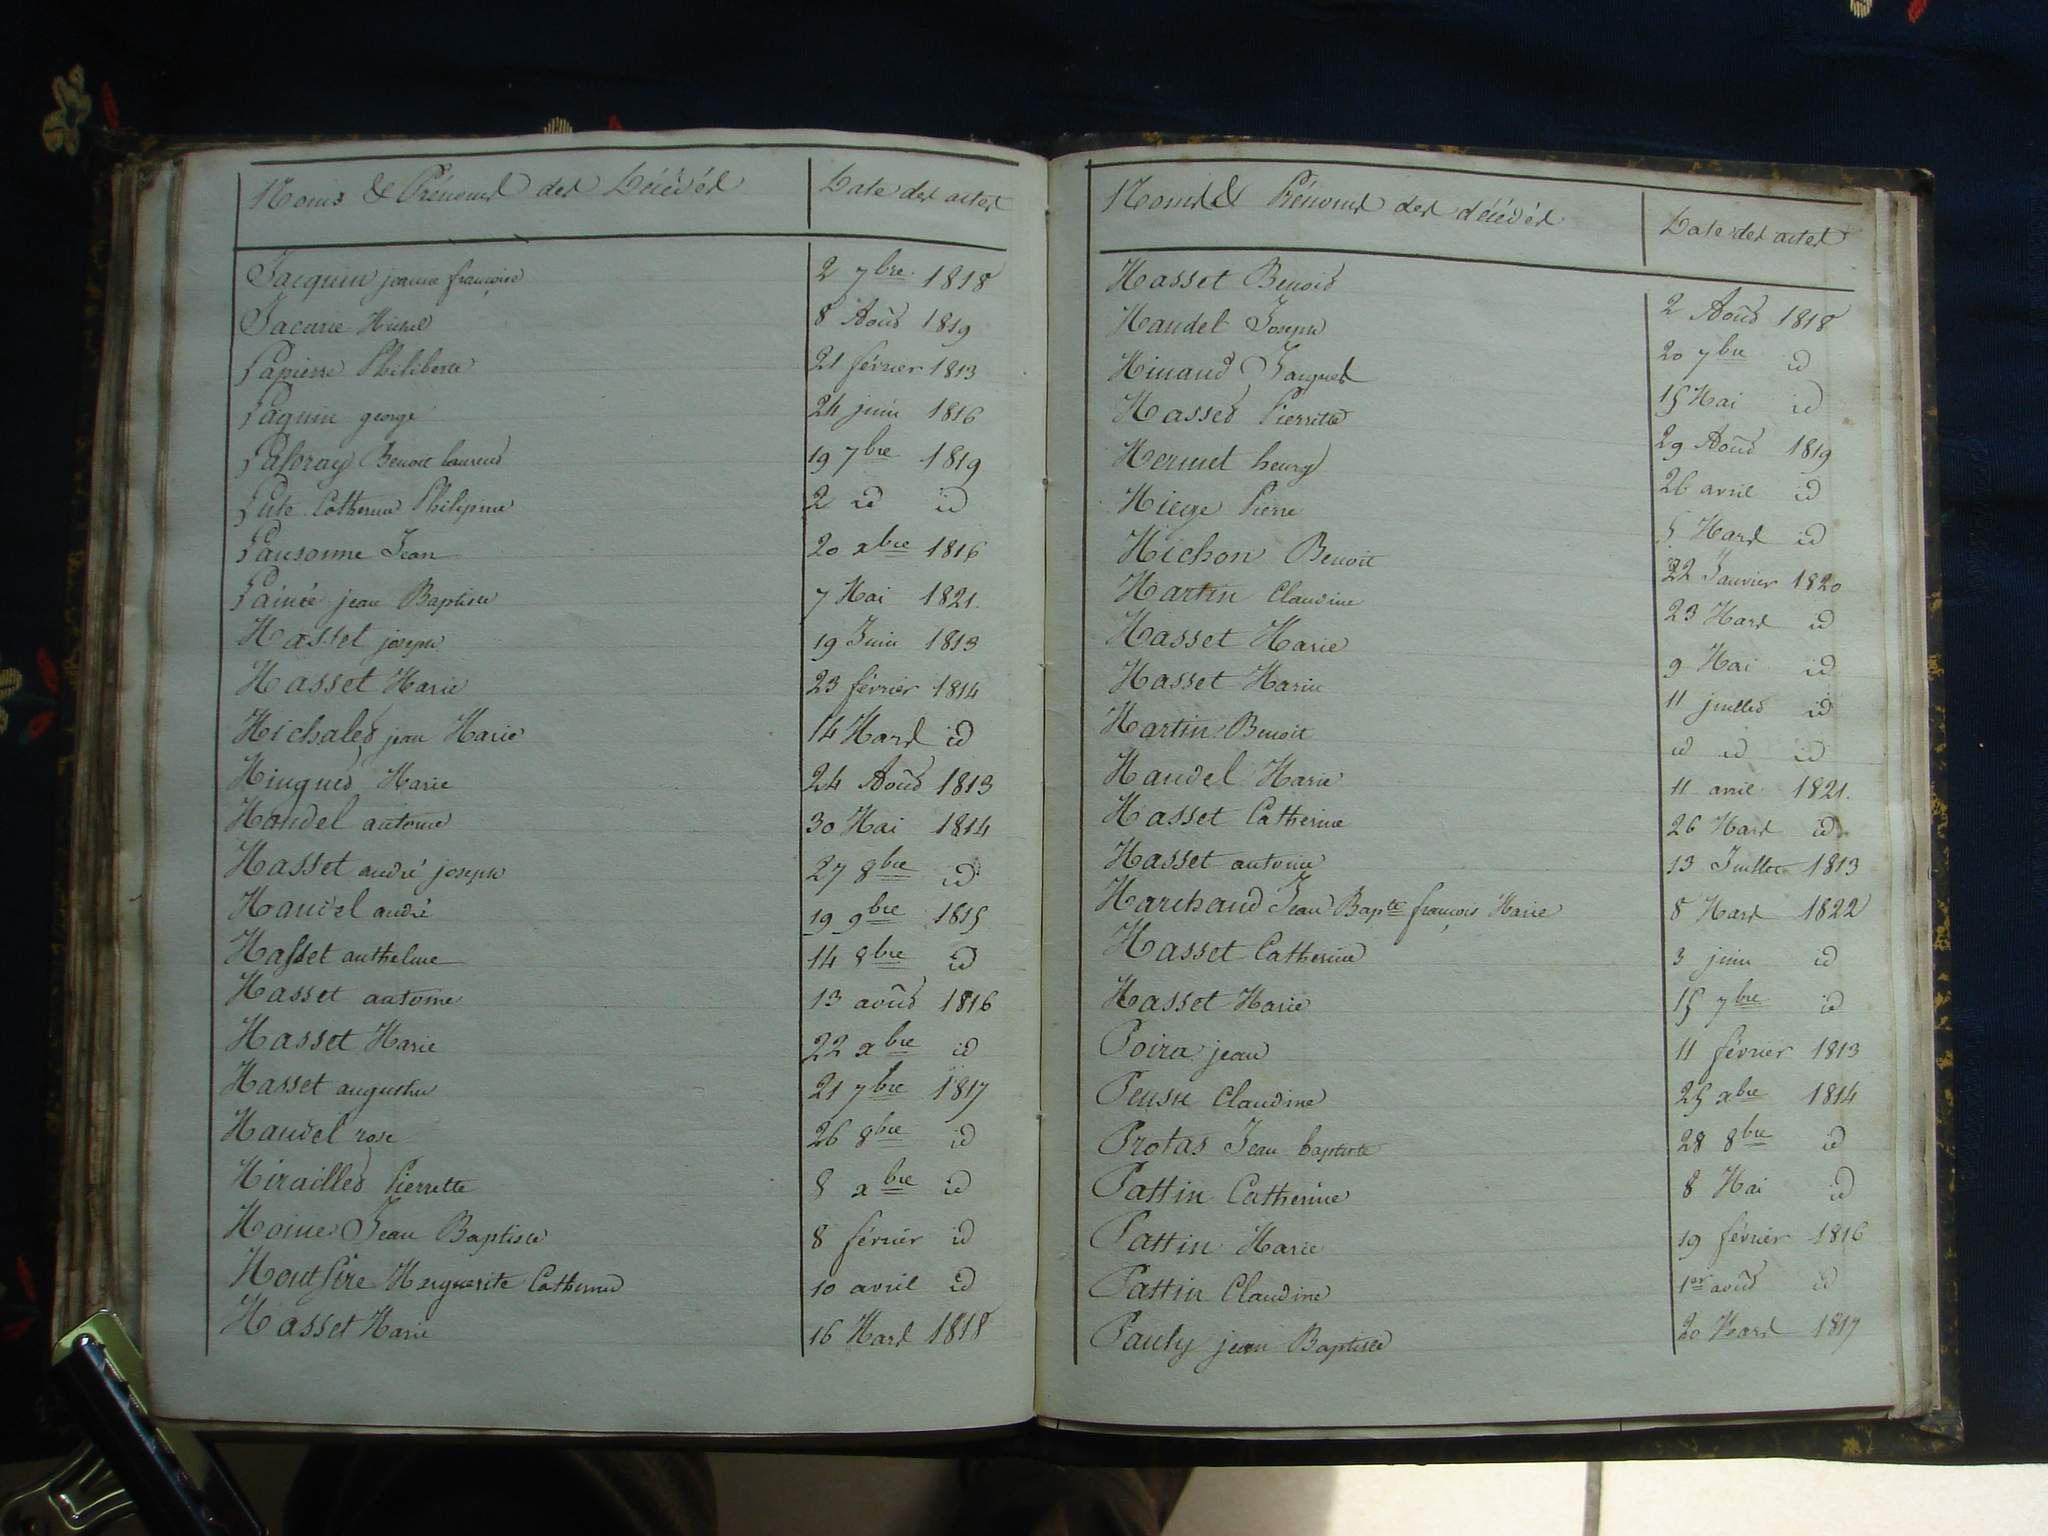 Noms & Prénoms des Décédés Date des actes
Jacquin jeanne françoise 2 7bre 1818
Jacarie Michel 8 Août 1819
Lapierre Philiberte 21 février 1813
Laquin george 24 juin 1816
Benoit Laurend 19 7bre 1819
Catherine Philipine 2 id id
Lansonne Jean 20 xbre 1816
Lainée jean Baptiste 7 Mai 1821.
Masset joseph 19 Juin 1813
Masset Marie 23 février 1814
Michaled jean Marie 14 Mars id
Mingued Marie 24 Août 1813
Mandel antoine 30 Mai 1814
Masset andré joseph 27 8bre id
Mandel andré 19 9bre 1815
Masset anthelme 14 8bre id
Masset antoine 13 août 1816
Masset Marie 22 xbre id
Masset augustin 21 7bre 1817
Mandel rose 26 8bre id
Mirailled Pierrette 8 xbre id
Moine Jean Baptiste 8 février id
Merguerite Catherine 10 avril id
Masset Marie 16 Mars 1818
Noms & Prénoms des décédés Date des actes
Masset Benoid 2 Août 1818
Mandel Joseph 20 7bre id
Minaud Jacques 15 Mai id
Massed Pierrette 29 Août 1819
Mermet henry 26 avril id
Miege Pierre 5 Mars id
Michon Benoit 22 Janvier 1820
Martin Claudine 23 Mars id
Masset Marie 9 Mai id
Masset Marie 11 juilled id
Martin Benoit id id id
Mandel Marie 11 avril 1821.
Masset Catherine 26 Mars id
Masset antoine 13 Juillet 1813
Marchand Jean Bapte françois Marie 8 Mars 1822
Masset Catherine 3 juin id
Masset Marie 15 7bre id
Poira jean 11 février 1813
Claudine 25 xbre 1814
Protas Jean baptiste 28 8bre id
Pattin Catherine 8 Mai id
Pattin Marie 19 février 1816
Pattin Claudine 1er août id
Pauly jean Baptiste 20 Mars 1817